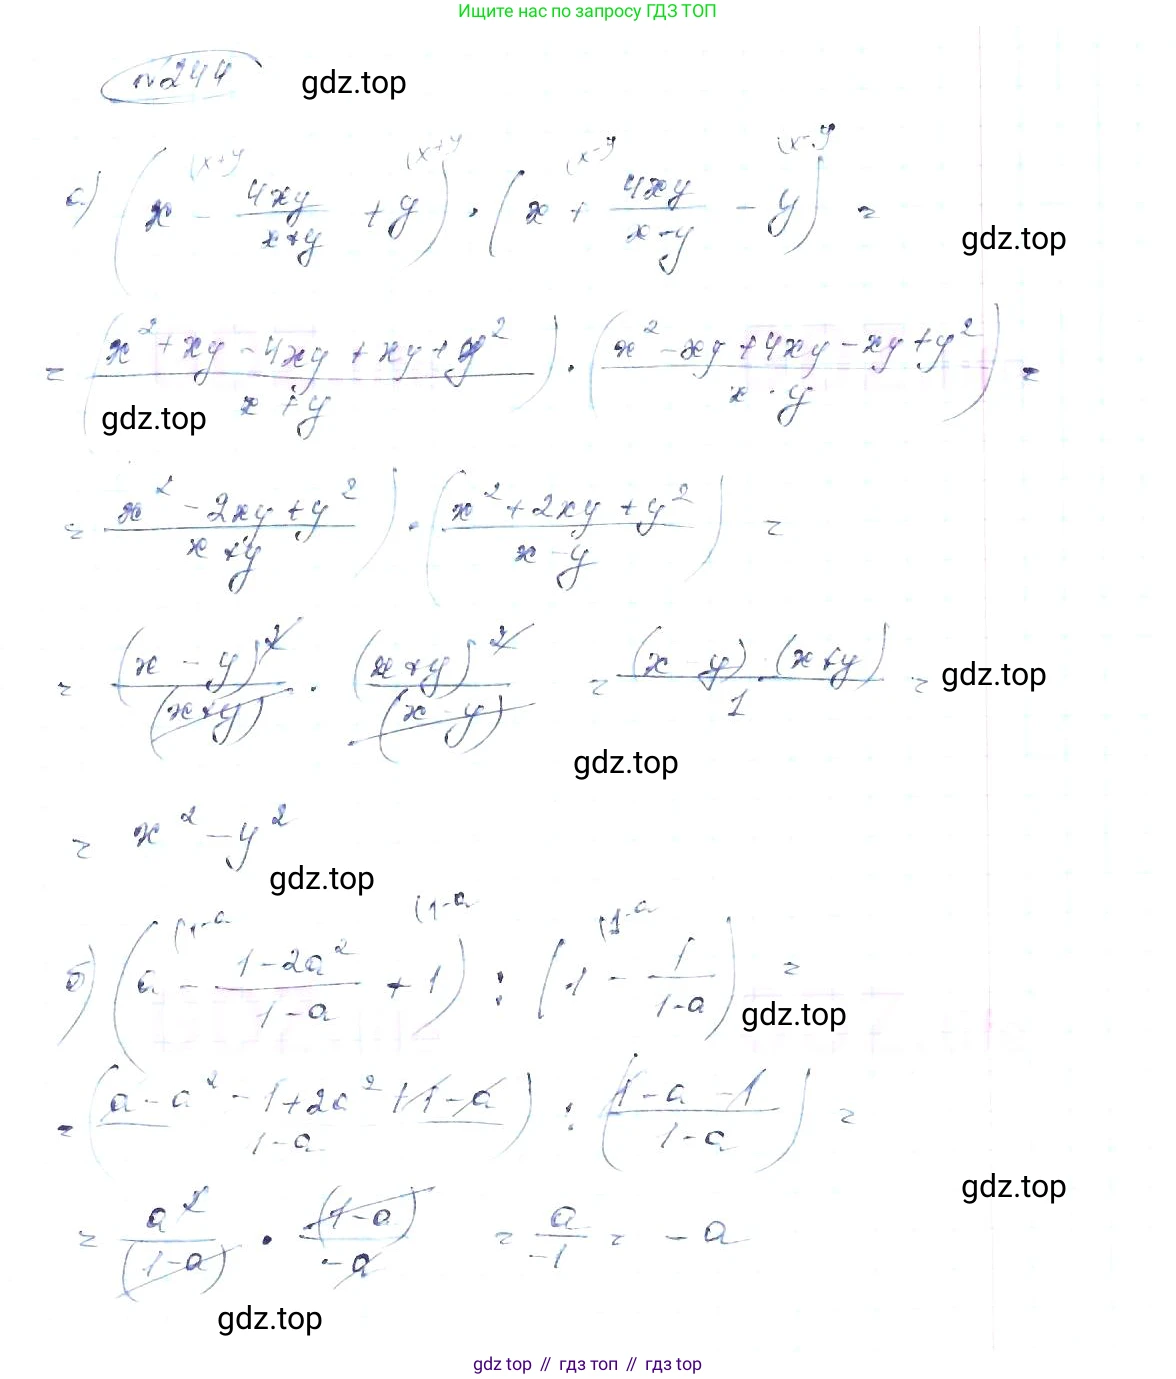 Ищите нас по запросу ГДЗ ТОП
№244 gdz.top
(x+y (x+y (x-y (x-y
а) (x - 4xy/(x+y) + y) · (x + 4xy/(x-y) - y) =
gdz.top
= ((x² + xy - 4xy + xy + y²)/(x+y)) · ((x² - xy + 4xy - xy + y²)/(x-y)) =
gdz.top
= (x² - 2xy + y²)/(x+y)) · ((x² + 2xy + y²)/(x-y)) =
= (x - y)²/(x+y) · (x+y)²/(x-y) = (x-y)·(x+y)/1 = gdz.top
gdz.top
= x² - y²
gdz.top
(1-a (1-a (1-a
б) (a - (1-2a²)/(1-a) + 1) : (1 - 1/(1-a)) =
gdz.top
= ((a - a² - 1 + 2a² + 1 - a)/(1-a)) : ((1-a-1)/(1-a)) =
gdz.top
= a²/(1-a) · (1-a)/-a = a/-1 = -a
gdz.top
gdz top // гдз топ // гдз top